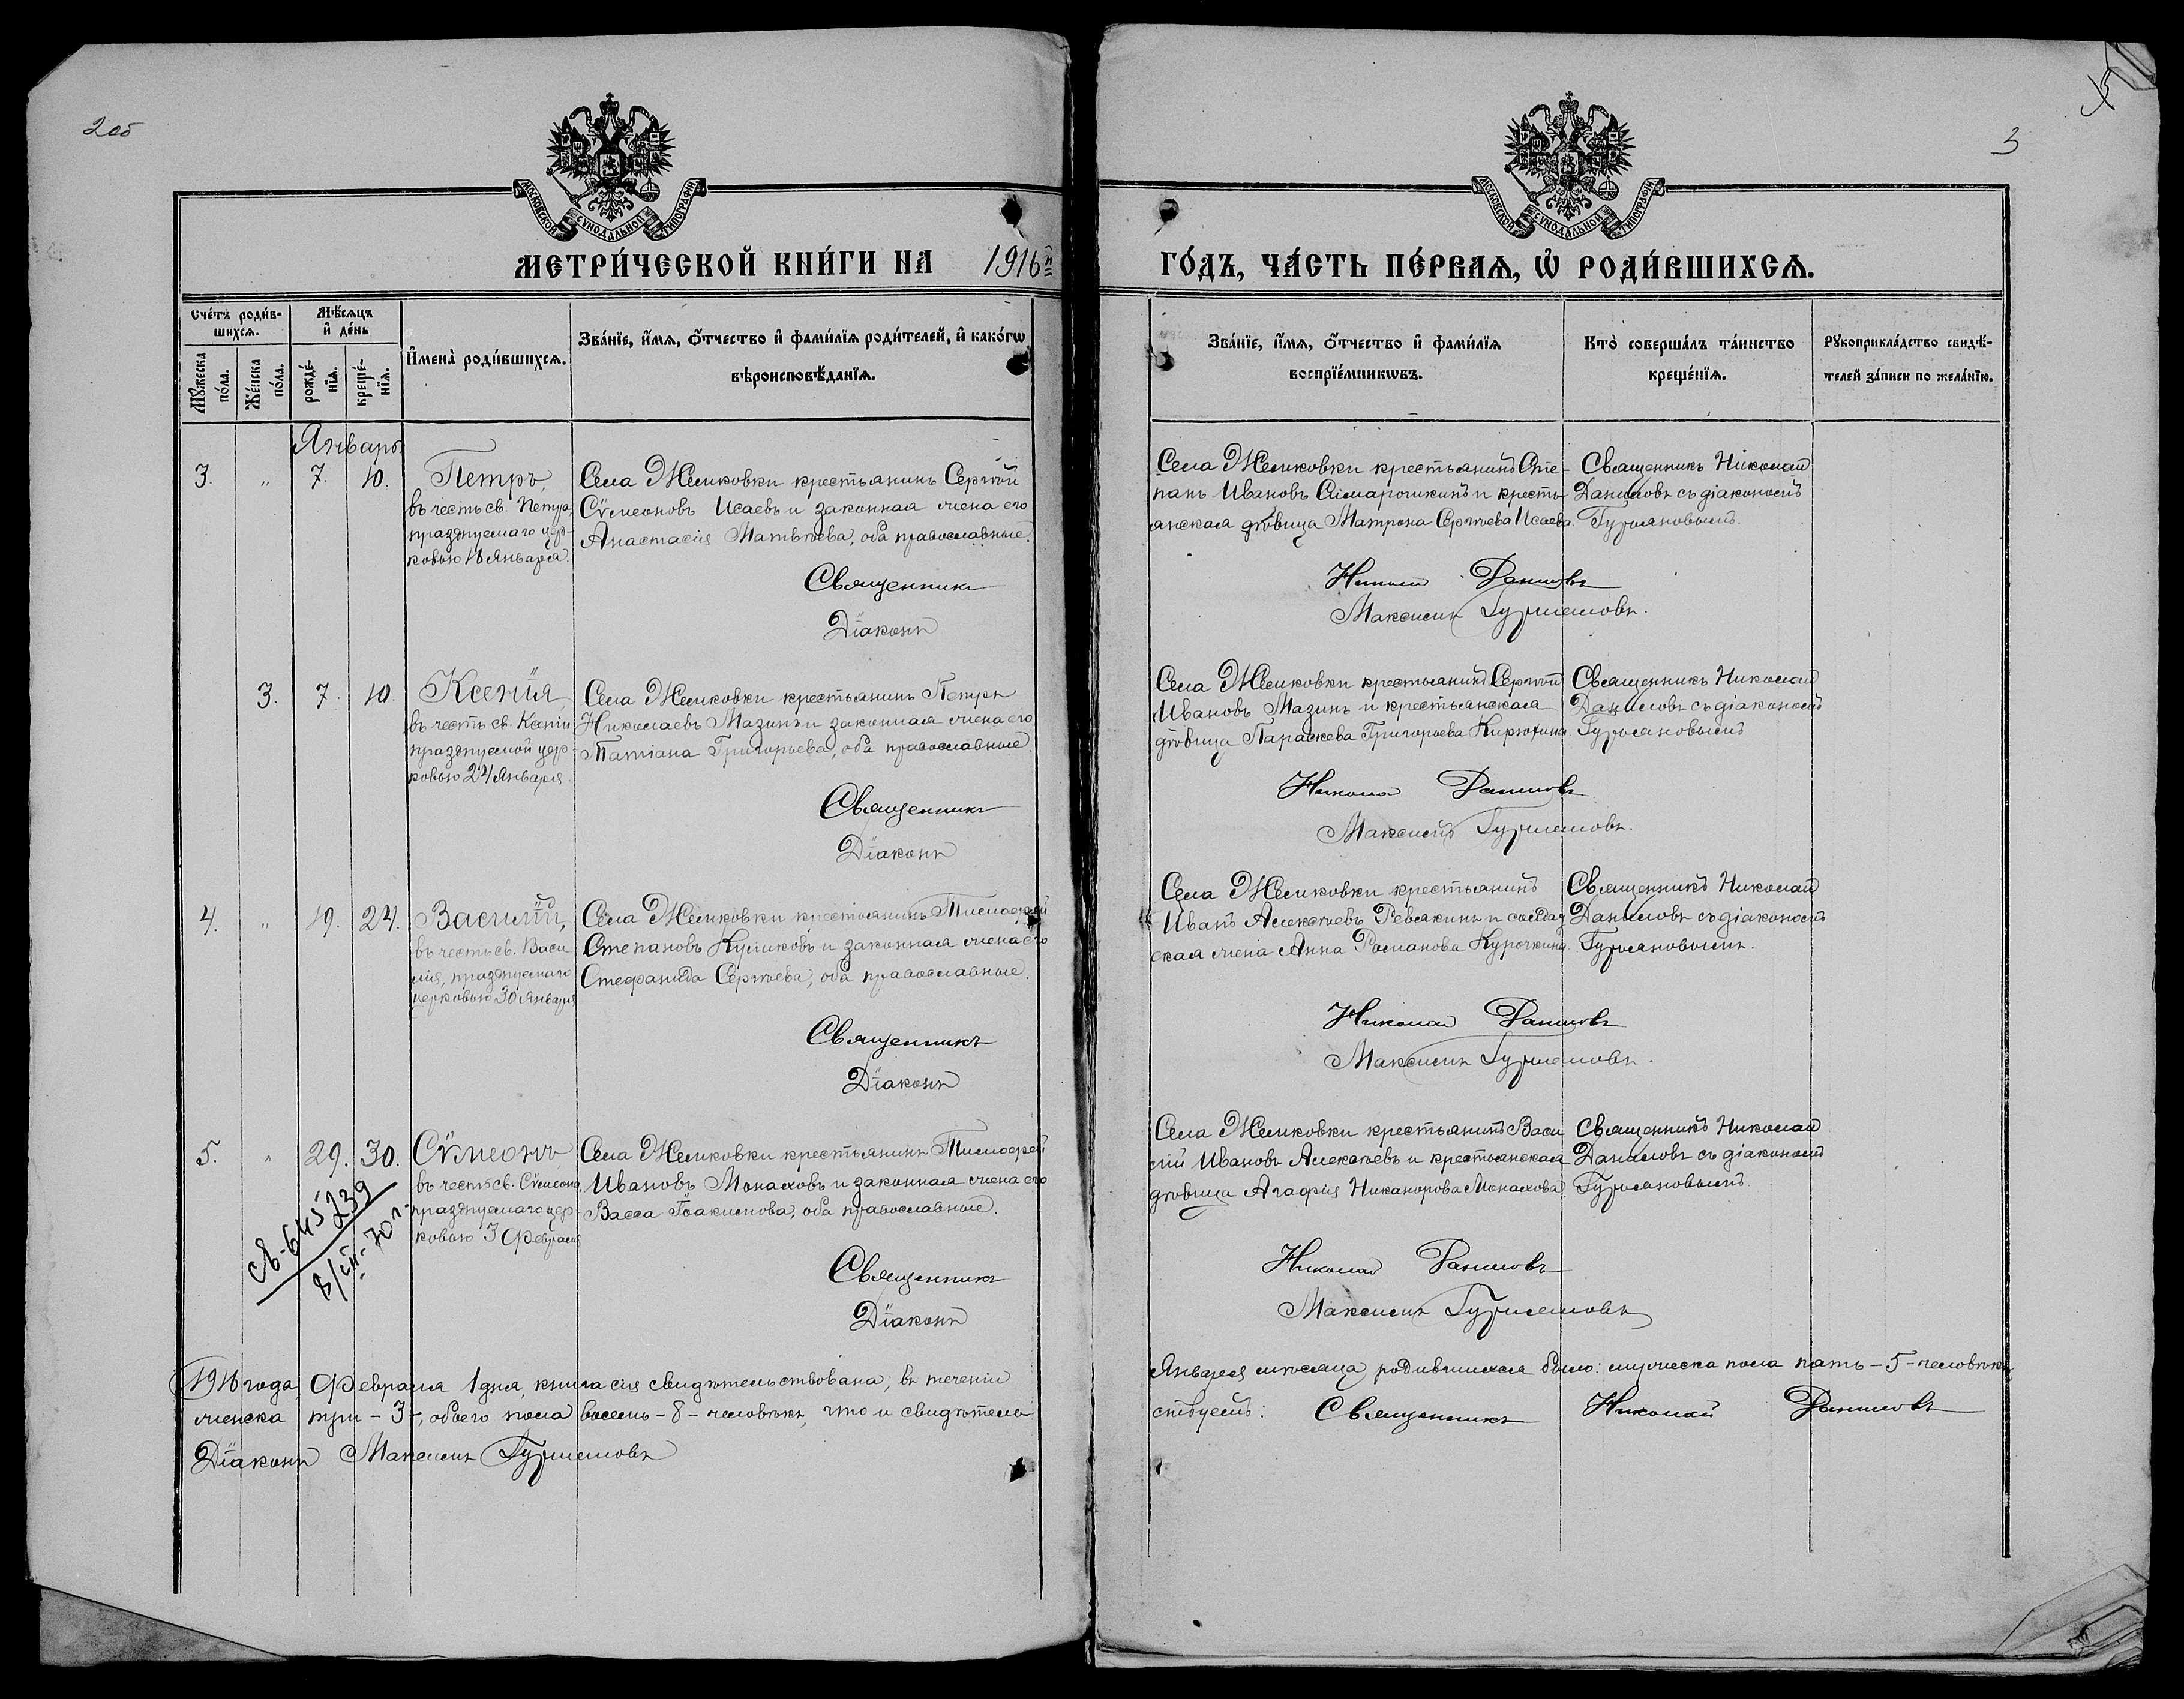 2об
3
МОСКОВСКОЙ СѴНОДАЛЬНОЙ ТИПОГРАФІИ
МОСКОВСКОЙ СѴНОДАЛЬНОЙ ТИПОГРАФІИ
МЕТРИ́ЧЕСКОЙ КНИ́ГИ НА 1916й ГО́ДЪ, ЧА́СТЬ ПЕ́РВАѦ, Ѡ҆ РОДИ́ВШИХСѦ.
Сче́тъ роди́в-
шихсѧ.
Мꙋ́жеска по́ла.
Же́нска по́ла.
Мѣ́сѧцъ и҆ де́нь
рожде́-
нїѧ.
креще́-
нїѧ.
И҆мена̀ роди́вшихсѧ.
Зва́нїе, и҆́мѧ, ѻ҆́тчество и҆ фами́лїѧ роди́телей, и҆ како́гѡ
вѣроисповѣ́данїѧ.
Зва́нїе, и҆́мѧ, ѻ҆́тчество и҆ фами́лїѧ
воспрїе́мникѡвъ.
Кто̀ соверша́лъ та́инство
креще́нїѧ.
Рꙋкоприкла́дство свидѣ́-
телей за́писи по жела́нїю.
Январь
3. " 7. 10. Петръ,
въ честь св. Петра,
празднуемаго цер-
ковью 16 Января.
Села Жемковки крестьянинъ Сергѣй
Сѵмеоновъ Исаевъ и законная жена его
Анастасія Матвѣева, оба православные.
Села Жемковки крестьянинъ Сте-
панъ Ивановъ и кресть-
янская дѣвица Матрона Сергѣева Исаева.
Священникъ Николай
Даниловъ съ діакономъ
Гурьяновымъ.
Священникъ Николай Даниловъ
Діаконъ Максимъ Гурьяновъ.
3. 7. 10. Ксенія,
въ честь св. Ксеніи
празднуемой цер-
ковью 24 Января.
Села Жемковки крестьянинъ Петръ
Николаевъ Мазинъ и законная жена его
Татіана Григорьева, оба православные.
Села Жемковки крестьянинъ Сергѣй
Ивановъ Мазинъ и крестьянская
дѣвица Параскева Григорьева Кирюхина.
Священникъ Николай
Даниловъ съ діакономъ
Гурьяновымъ
Священникъ Николай Даниловъ
Діаконъ Максимъ Гурьяновъ.
4. " 19. 24. Василій,
въ честь св. Васи
лія, празднуемаго
церковью 30 Января
Села Жемковки крестьянинъ Тимофей
Степановъ Куликовъ и законная жена его
Стефанида Сергѣева, оба православные.
Села Жемковки крестьянинъ
Иванъ Алексѣевъ Ревякинъ и солдат
ская жена Анна Романова Курочкина.
Священникъ Николай
Даниловъ съ діакономъ
Гурьяновымъ.
Священникъ Николай Даниловъ
Діаконъ Максимъ Гурьяновъ.
5. " 29. 30. Сѵмеонъ
въ честь св. Сѵмеона,
празднуемаго цер-
ковью 3 Февраля
Села Жемковки крестьянинъ Тимофей
Ивановъ Монаховъ и законная жена его
Васса Іоакимова, оба православные.
Села Жемковки крестьянинъ Васи
лій Ивановъ Алексѣевъ и крестьянская
дѣвица Агафія Никанорова Монахова
Священникъ Николай
Даниловъ съ діакономъ
Гурьяновымъ.
св-645239
8/III-70 г.
Священникъ Николай Даниловъ
Діаконъ Максимъ Гурьяновъ
1916 года Февраля 1 дня, книга сія свидѣтельствована; въ теченіи Января мѣсяца родившихся было: мужеска пола пять – 5 – человѣкъ
женска три – 3 –, обоего пола восемь – 8 – человѣкъ, что и свидѣтель ствуемъ: Священникъ Николай Даниловъ
Діаконъ Максимъ Гурьяновъ